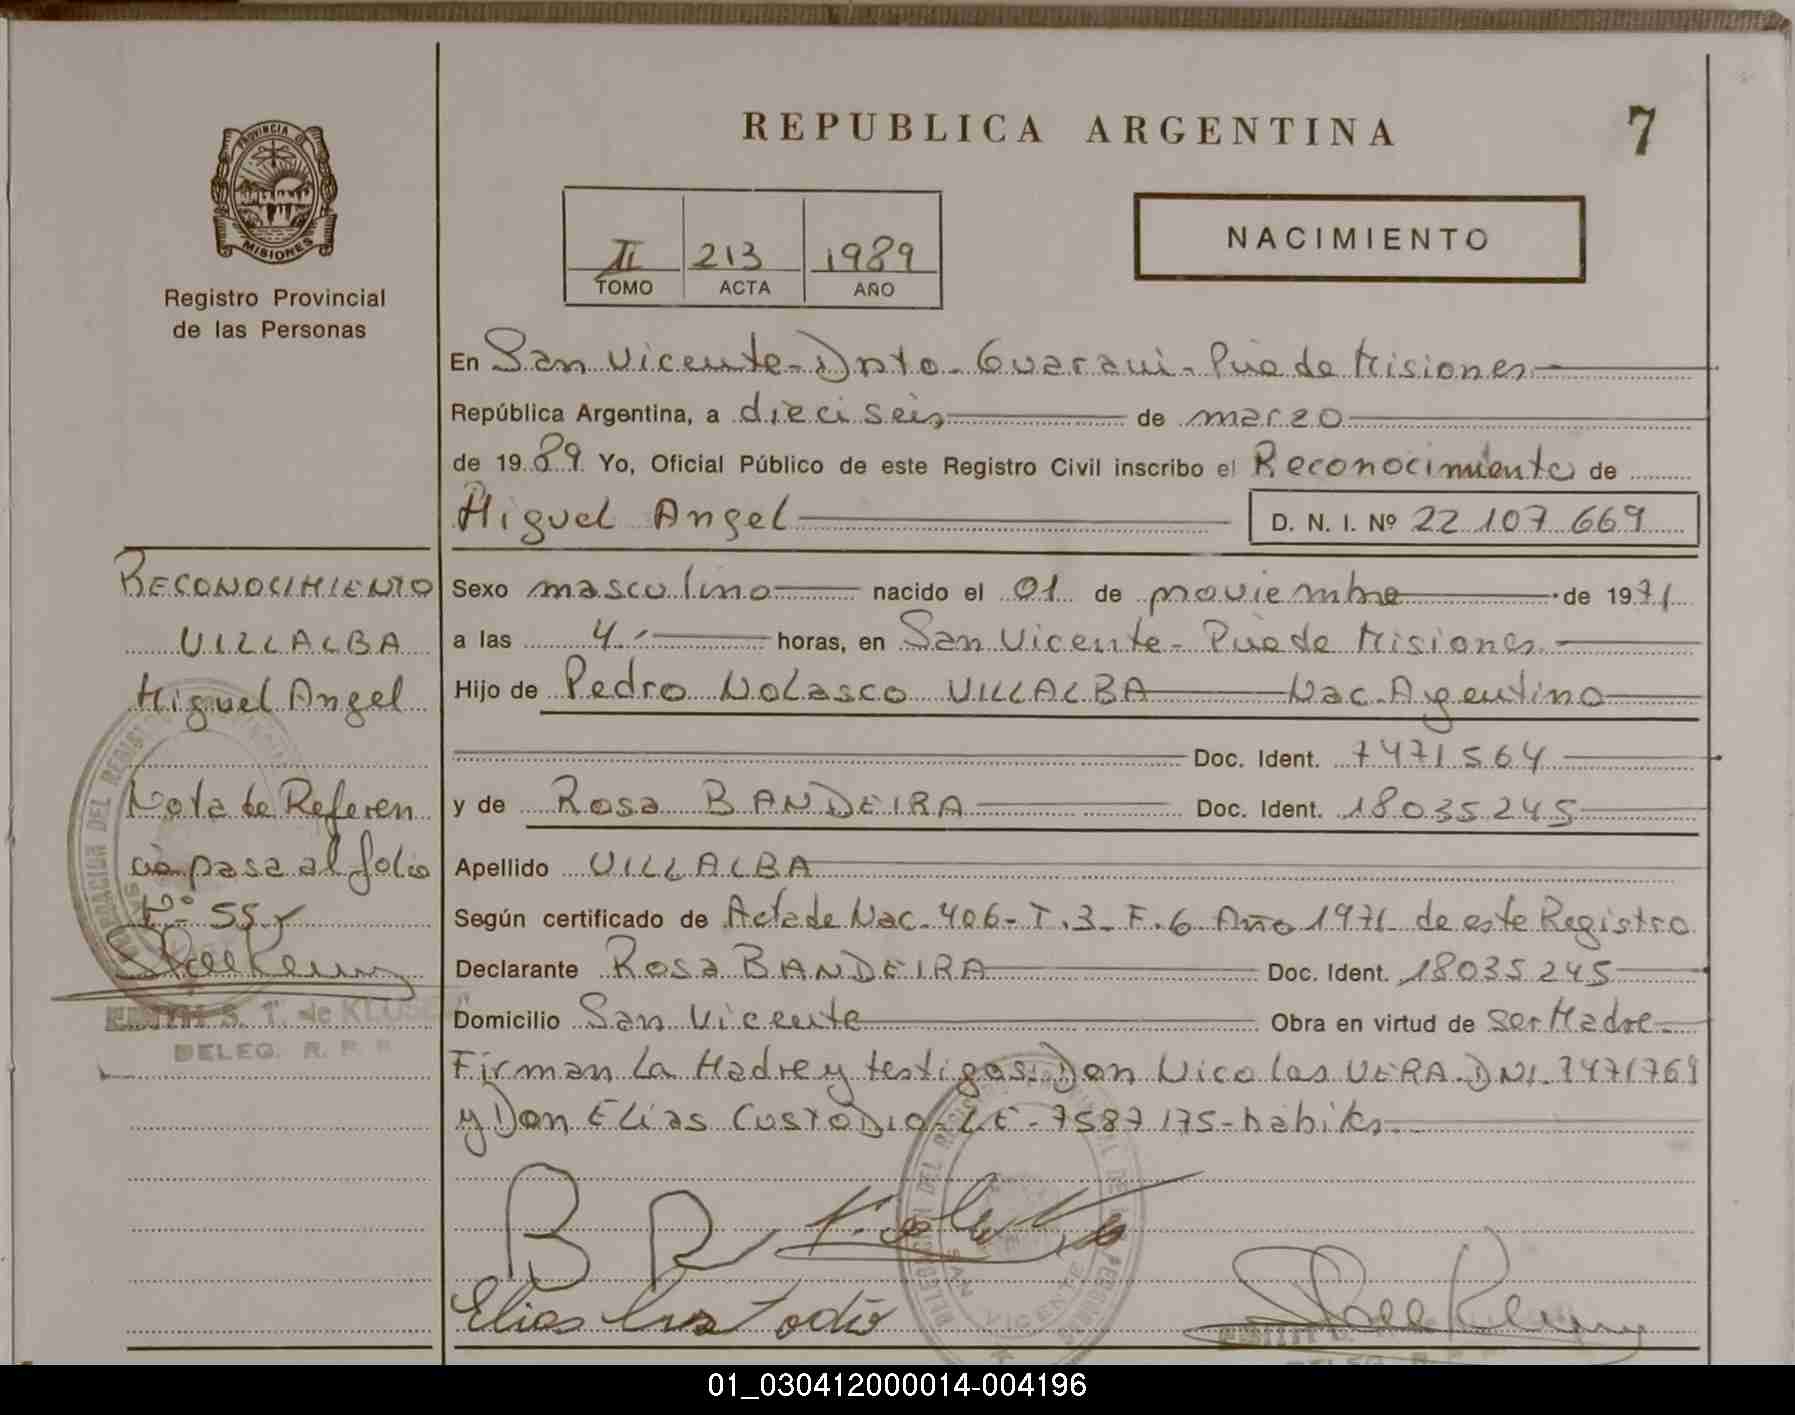 REPUBLICA ARGENTINA
7
PROVINCIA
MISIONES
Registro Provincial
de las Personas
II 213 1989
TOMO ACTA AÑO
NACIMIENTO
En San Vicente - Dpto - Guarani - Pcia de Misiones
República Argentina, a dieciseis de marzo
de 1989 Yo, Oficial Público de este Registro Civil inscribo el Reconocimiento de
Miguel Angel D. N. I. Nº 22 107 669
RECONOCIMIENTO
VILLALBA
Miguel Angel
Nota de Referen
cia pasa al folio
Nº 55
EDITH S. T. de
DELEG. R. P. P.
Sexo masculino nacido el 01 de noviembre de 1971
a las 4.- horas, en San Vicente - Pcia de Misiones
Hijo de Pedro Nolasco VILLALBA Nac. Argentino
Doc. Ident. 7471564
y de Rosa BANDEIRA Doc. Ident. 18035245
Apellido VILLALBA
Según certificado de Acta de Nac. 406 - T. 3 - F. 6 Año 1971 de este Registro
Declarante Rosa BANDEIRA Doc. Ident. 18035245
Domicilio San Vicente Obra en virtud de ser Madre
Firman la Madre y testigos: Don Nicolas VERA DNI. 7471769
y Don Elias CUSTODIO - L.E - 7587175 - habiles
B R
Elias Custodio
SAN VICENTE
01_030412000014-004196